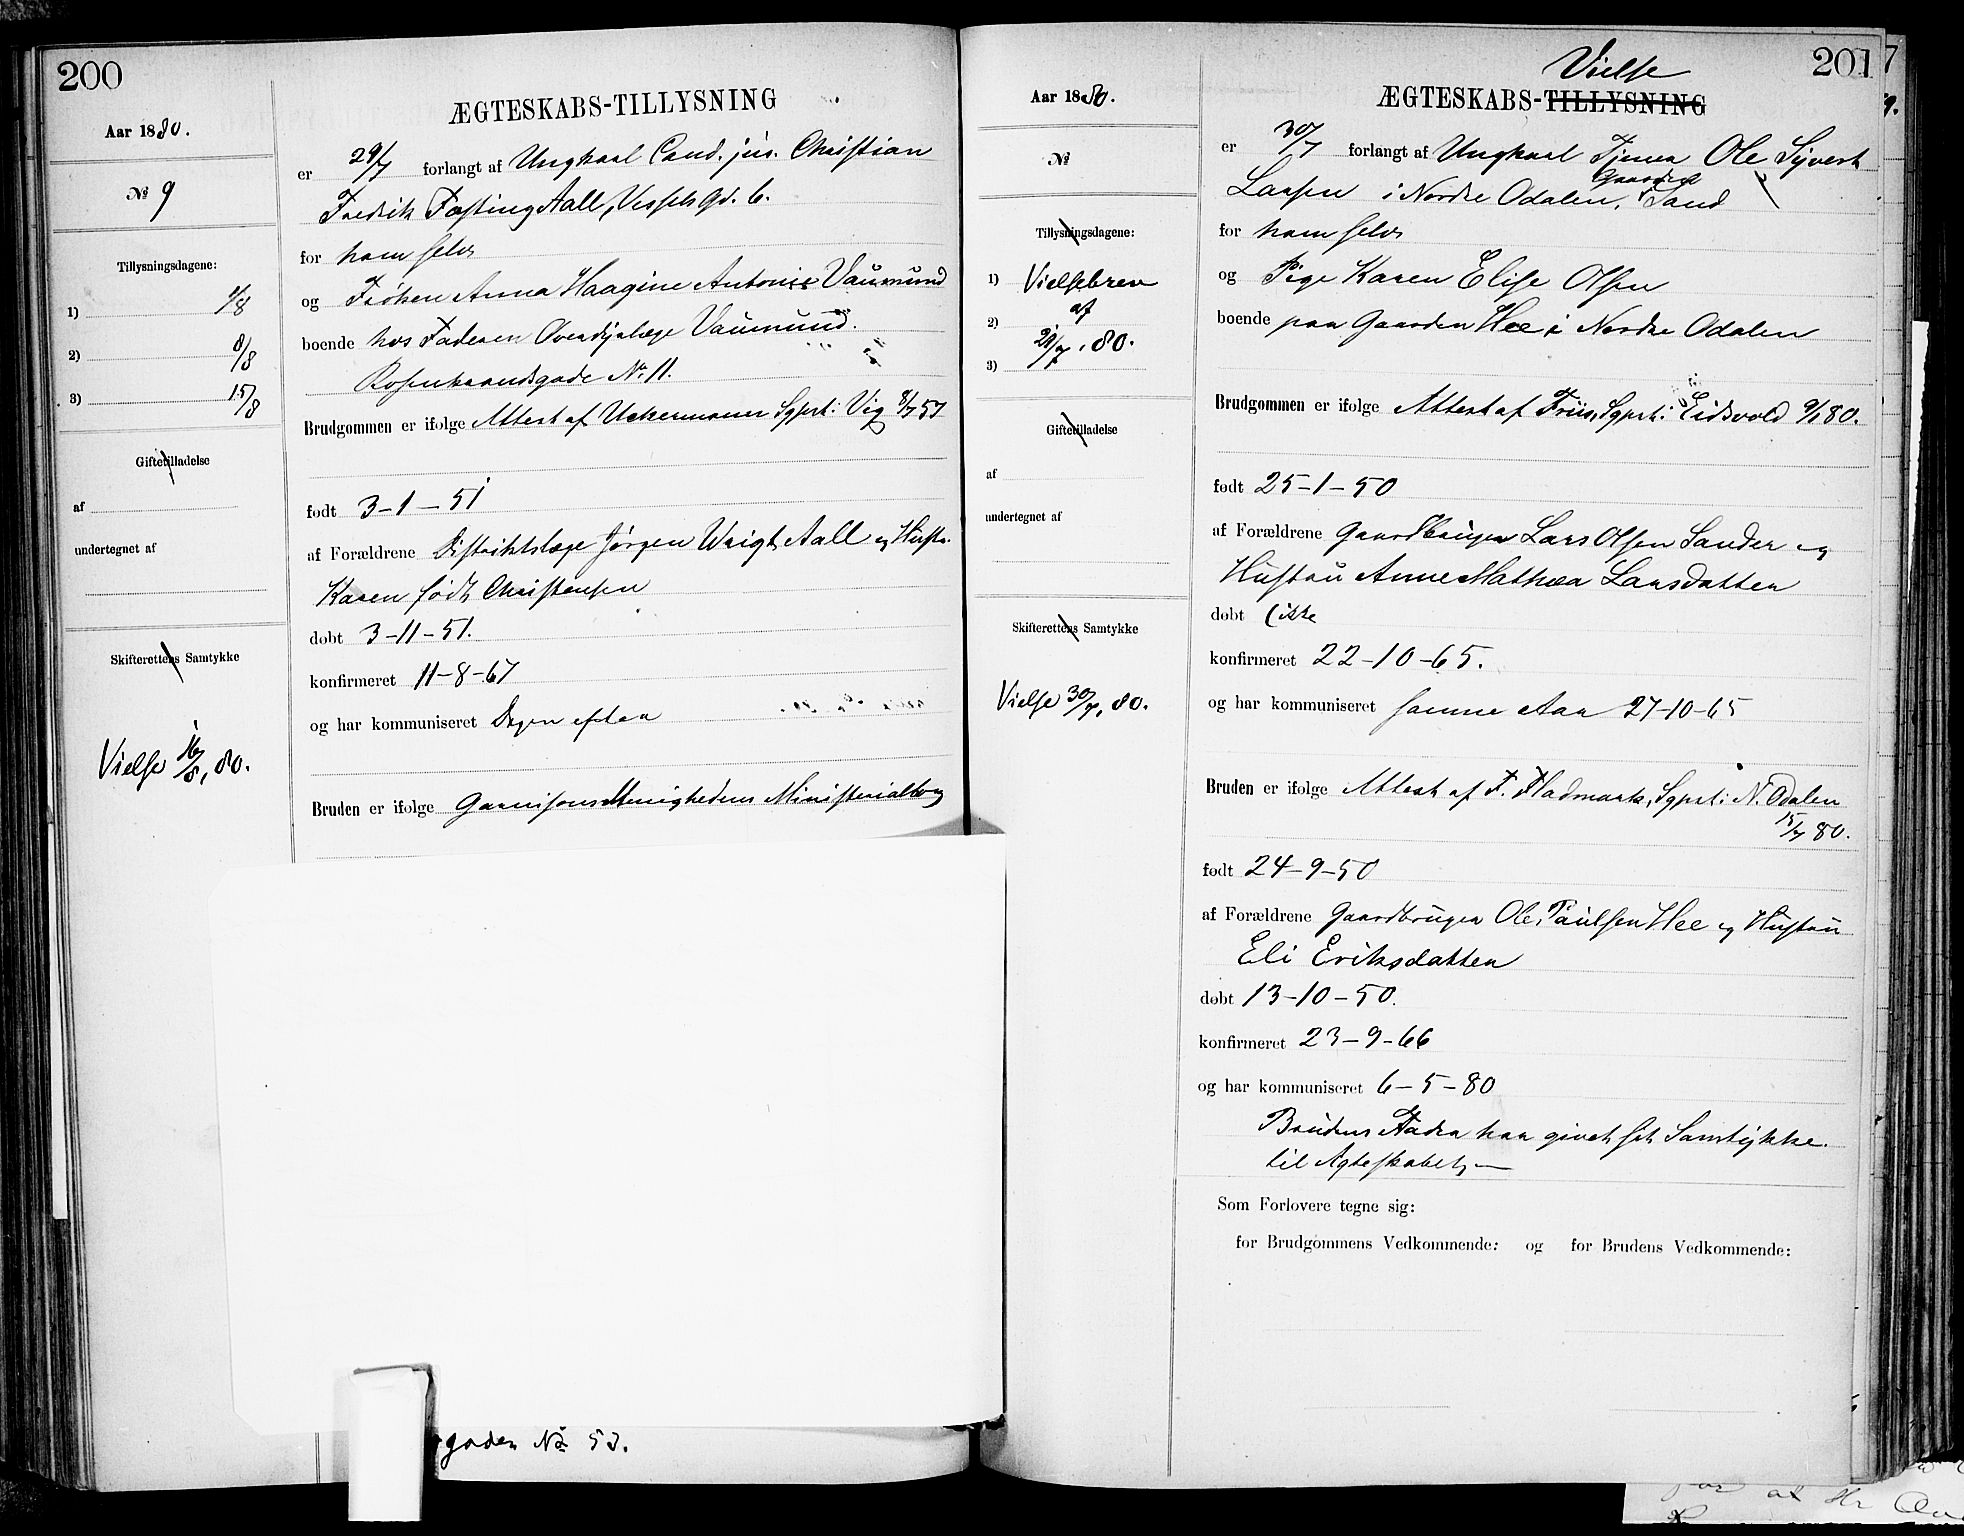 200
Aar 1880.
№ 9
Tillysningsdagene:
1) 1/8
2) 8/8
3) 15/8
Giftetilladelse
af
undertegnet af
Skifterettens Samtykke
Vielse 16/8, 80.
ÆGTESKABS-TILLYSNING
er 29/7 forlangt af Ungkarl Cand. jur. Christian
Fredrik Fasting Aall, Vessels Gd. 6.
for ham selv
og Frøken Anna Haagine Antonie Vaumund
boende hos Faderen Overdyrlæge Vaumund.
Rosenkrandsgade No. 11.
Brudgommen er ifølge Attest af Uckermann Sgpst: Vig 8/7 57
født 3-1-51
af Forældrene Distriktslæge Jørgen Wright Aall og Hustru
Karen født Christensen
døbt 3-11-51.
konfirmeret 11-8-67
og har kommuniseret Dagen efter
Bruden er ifølge Garnisons Menighedens Ministerialbog
gaden No 53.
201
Aar 1880.
№
Tillysningsdagene:
1) Vielsebrev
2) af
29/7, 80.
3)
Giftetilladelse
af
undertegnet af
Skifterettens Samtykke
Vielse 30/7, 80.
Vielse
ÆGTESKABS-TILLYSNING
er 30/7 forlangt af Ungkarl Tjener Ole Syvert
Gaarden
Larsen i Nordre Odalen, Sand
for ham selv
og Pige Karen Elise Olsen
boende paa Gaarden Hee i Nordre Odalen
Brudgommen er ifølge Attest af Friis, Sgpst: Eidsvold 9/7 80.
født 25-1-50
af Forældrene Gaardbruger Lars Olsen Sander og
Hustru Anne Mathea Larsdatter
døbt (ikke
konfirmeret 22-10-65.
og har kommuniseret samme Aar 27-10-65
Bruden er ifølge Attest af F. Fladmark, Sgpst: N. Odalen
15/7 80.
født 24-9-50
af Forældrene Gaardbruger Ole Paulsen Hee og Hustru
Eli Eriksdatter
døbt 13-10-50.
konfirmeret 23-9-66
og har kommuniseret 6-5-80
Brudens Fader har givet sit Samtykke
til Ægteskabet,—
Som Forlovere tegne sig:
for Brudgommens Vedkommende: og for Brudens Vedkommende: